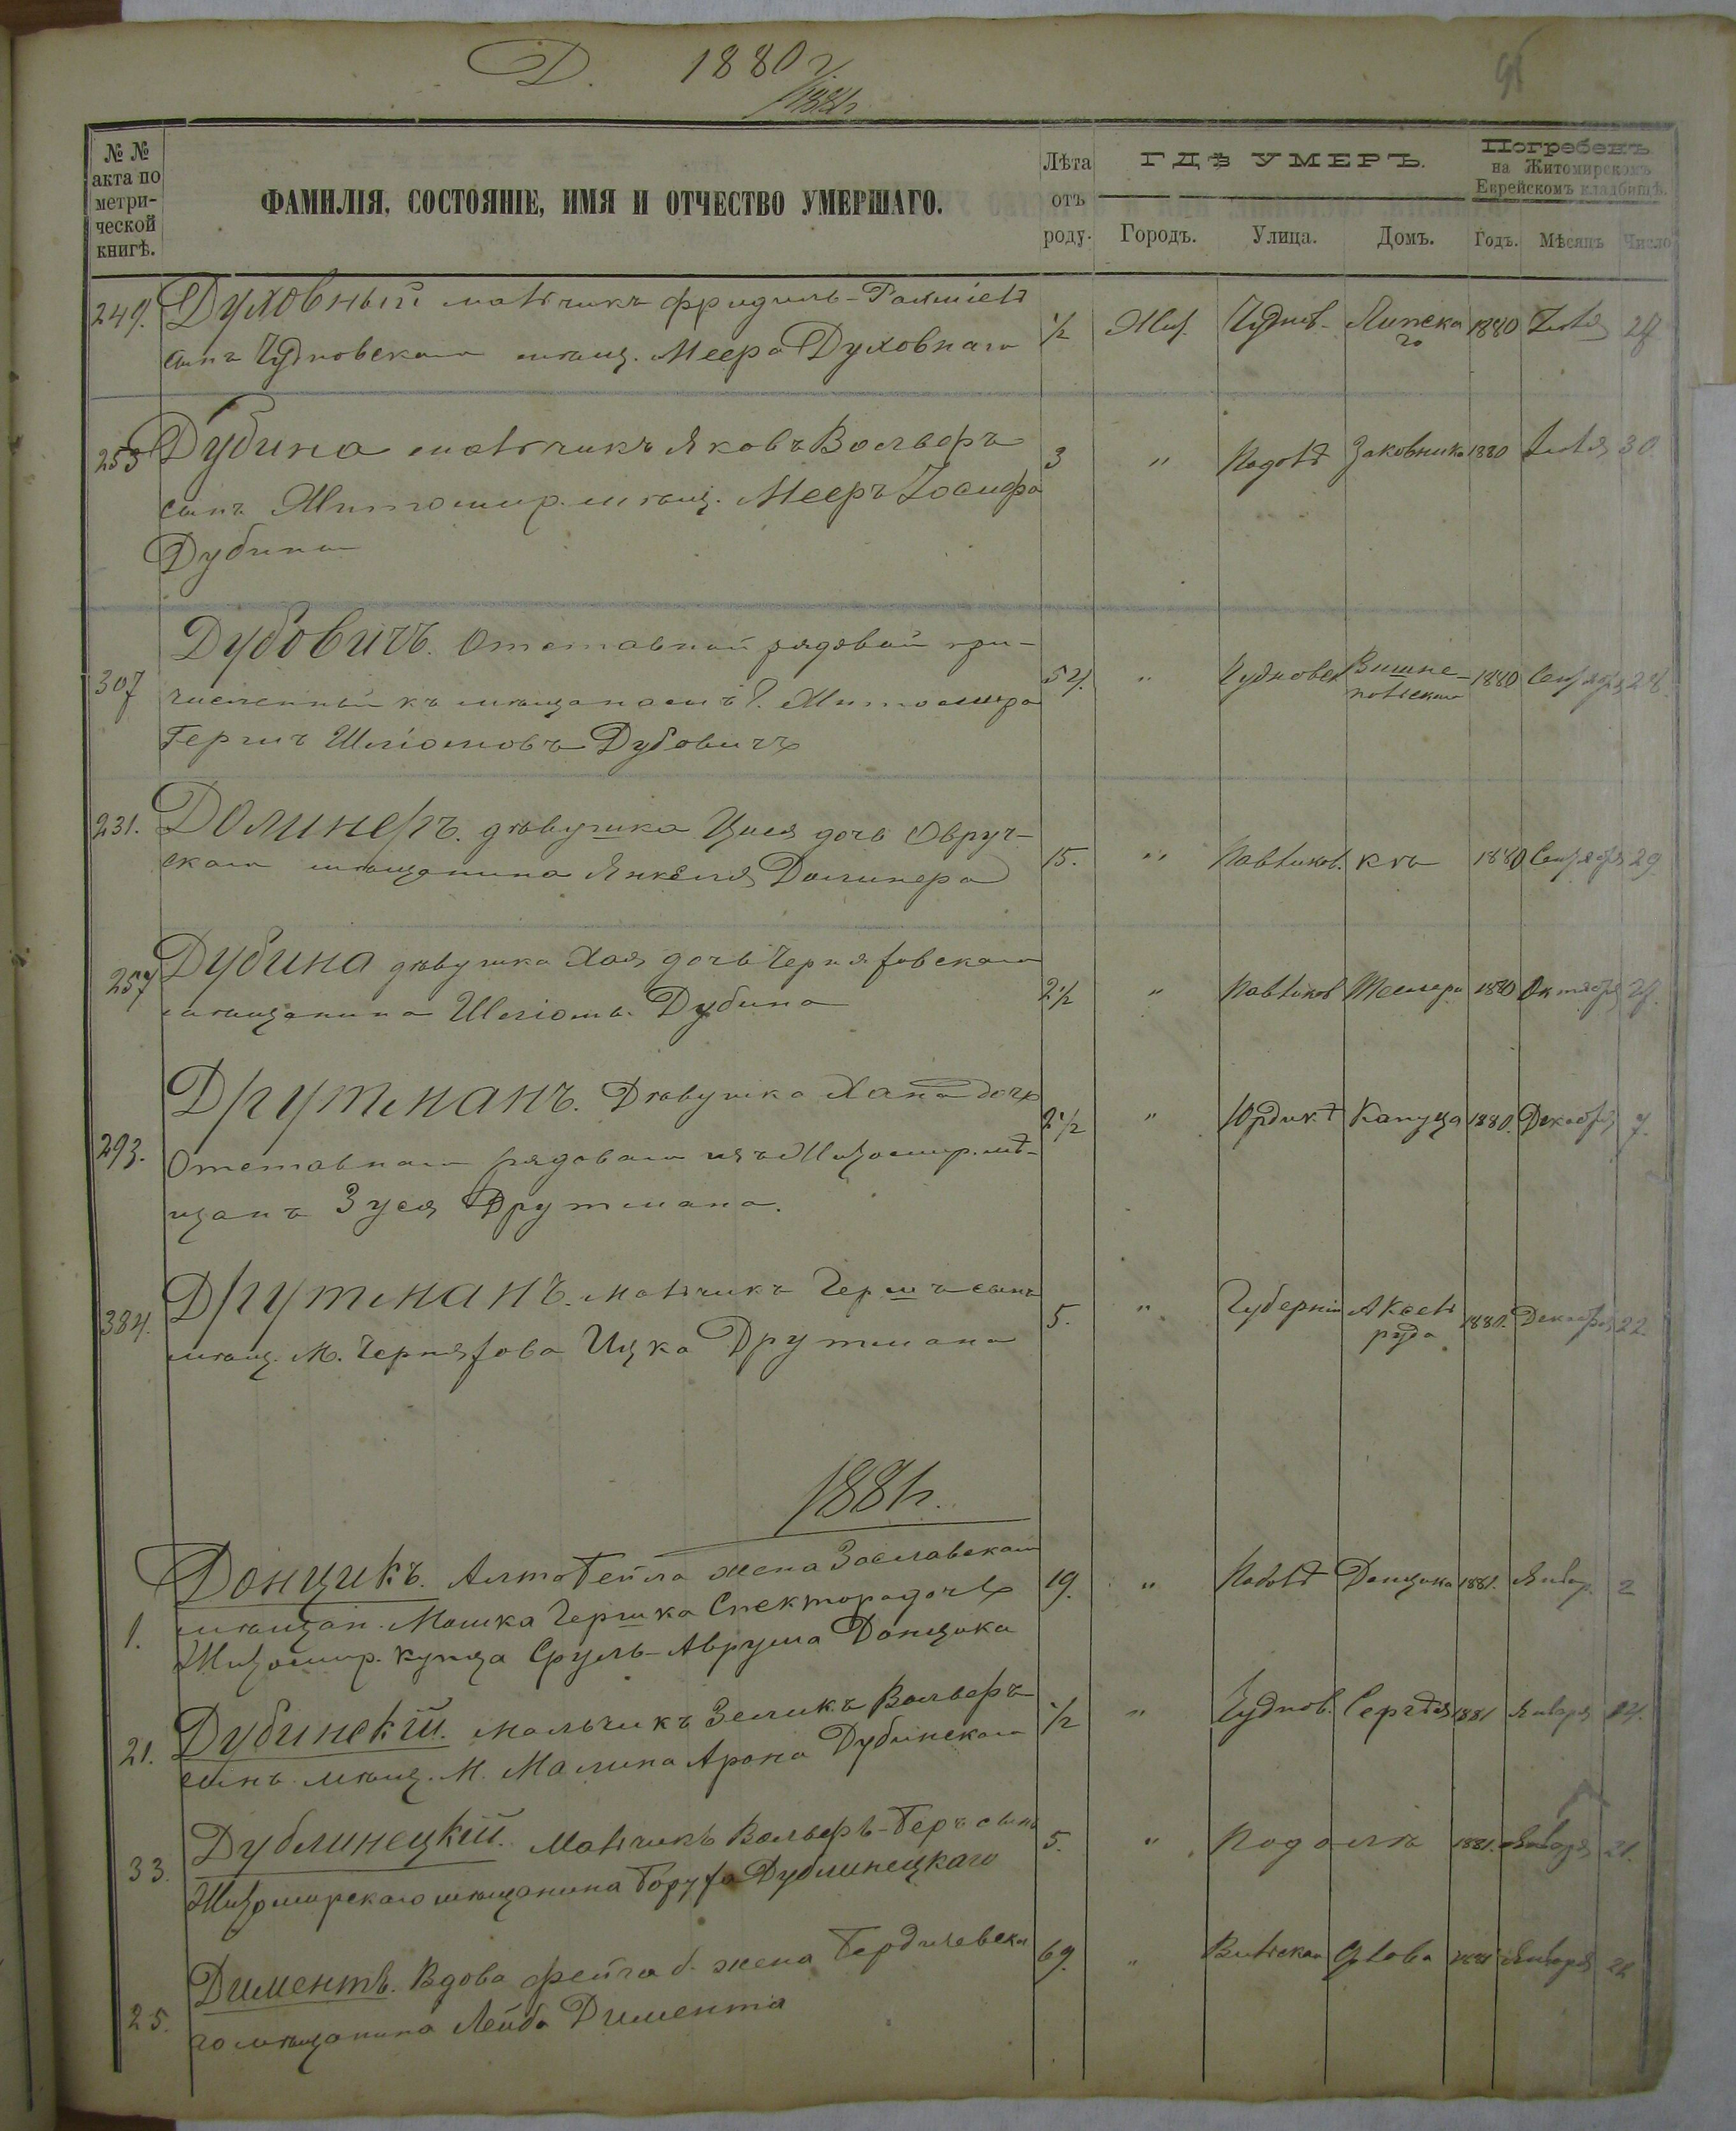 Д. 1880 г.
1881 г.
№ №
акта по
метри-
ческой
книгѣ.
ФАМИЛІЯ, СОСТОЯНІЕ, ИМЯ И ОТЧЕСТВО УМЕРШАГО.
Лѣта
отъ
роду.
ГДѢ УМЕРЪ.
Городъ. Улица. Домъ.
Погребенъ
на Житомирскомъ
Еврейскомъ кладбищѣ.
Годъ. Мѣсяцъ Число
249. Духовный мальчикъ Фридель- 1/2 Жит. Чуднов. Липска 1880 Іюля
го
сынъ Чудновскаго мѣщ. Меера Духовнаго
253 Дубина мальчикъ Яковъ Вольворъ 3 " Подолѣ Заковника 1880 Іюля 30
сынъ Житомир. мѣщ. Мееръ Іосифа
Дубина
Дубовичъ. Отставной рядовой при-
307 численный къ мѣщанамъ г. Житомира 54. " Чудновск Вишне- 1880 Сентября 28.
польскаго
Гершъ Шліомовъ Дубовичъ
231. Долинеръ. дѣвушка Цися дочь Овруч- 15. " Павликов. 1880 Сентября 29.
скаго мѣщанина Янкеля Долинера
257 Дубина дѣвушка Хая дочь Черняховскаго 2 1/2 " Павликов 1880 Октября
мѣщанина Шліомы Дубина
Друтманъ. Дѣвушка Хана дочь
293. Отставнаго рядоваго изъ Житомир. мѣ- 2 1/2 " Юрдик. Капуца 1880. Декабря 7.
щанъ Зуся Друтмана.
384. Друтманъ. мальчикъ Гершъ сынъ 5. " Губерніи 1880. Декабря 22.
мѣщ. М. Черняхова Ицка Друтмана
1881 г.
Донцикъ. Алта Бейла жена Заславскаго 19. " Подолѣ Донцика 1881. Январ. 2
1. мѣщан. Мошка Гершка Спектора дочь
Житомир. купца Сруль-Аврума Донцика
21. Дубинскій. мальчикъ Зеликъ Вольверъ 1/2 " Чуднов. Сергѣя 1881 Января 14.
сынъ мѣщ. М. Малина Арона Дубинскаго
33. Дублинецкій. Мальчикъ Вольверъ-Беръ сынъ 5. " Подолѣ 1881. Января 21.
Житомирскаго мѣщанина Боруха Дублинецкаго
Диментъ. Вдова Фейга б. жена Бердичевска 69. " Вильская 1881 Января 22
25. го мѣщанина Лейба Димента